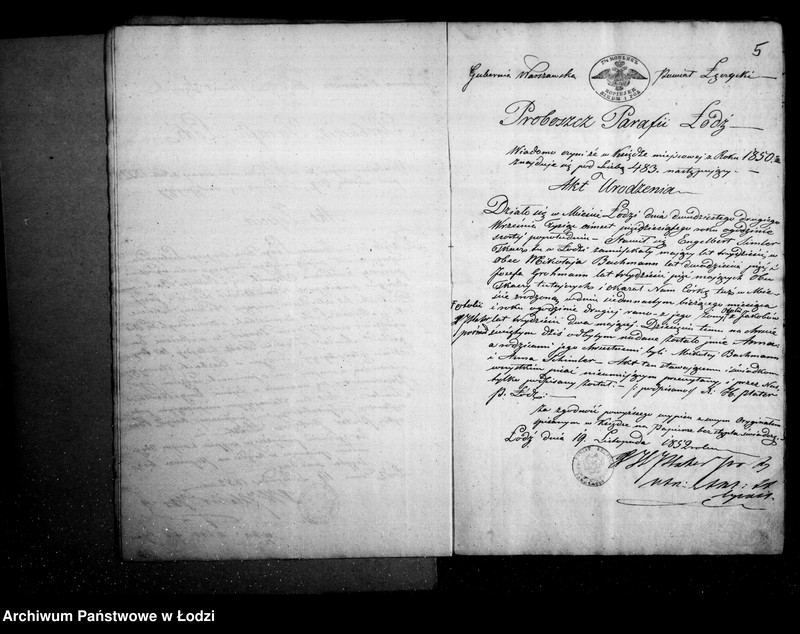 5
Gubernia Warszawska Powiat Zgierski
Proboszcz Parafii Łódź
Wiadomo czyni że w Księdze miejscowej z Roku 1850
znajduje się pod Liczbą 483. następujący.
Akt Urodzenia
Działo się w Mieście Łodzi dnia dwudziestego drugiego
Września Tysiąc ośmset pięćdziesiątego roku o godzinie
szóstej popołudniu. Stawił się Engelbert Simler
Tkacz tu w Łodzi zamieszkały mający lat trzydzieści, w
obec Mikołaja Bachmann lat dwadzieścia pięć i
Józefa Grohmann lat trzydzieści pięć mających Obu
Tkaczy tutejszych i okazał Nam Córkę tu w Mie-
ście zrodzoną w dniu siedemnastym bieżącego miesiąca
i roku o godzinie drugiej rano z jego żony z Jakobów
lat trzydzieści dwa mającej. Dziecięciu temu na Chrzcie
świętym dziś odbytym nadane zostało imie Anna
a rodzicami jego chrzestnemi byli Mikołaj Bachmann
i Anna Schimler. Akt ten stawającemu i świadkom
pisać nieumiejącym przeczytany i przez Nas
tylko podpisany został. (podpisano) X. H. Plater
P. Łódz.
Za zgodność powyższego wypisu z swym Oryginałem
w Księdze na papierze bez stępla
Łódź dnia 19. Listopada 1852 roku
X H Plater
Archiwum Państwowe w Łodzi